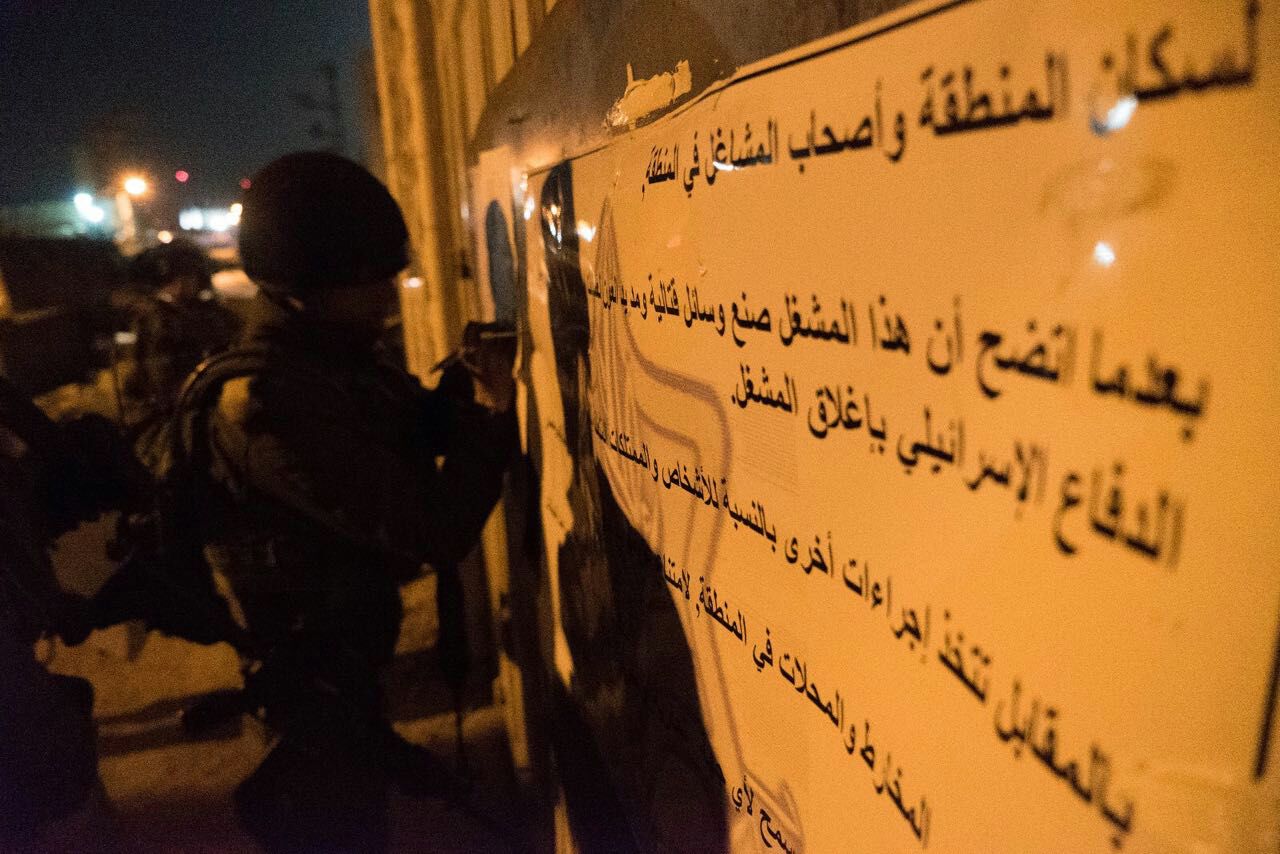 لسكان المنطقة وأصحاب المشاغل في المنطقة,
بعدما اتضح أن هذا المشغل صنع وسائل قتالية ومد يد العون
الدفاع الإسرائيلي بإغلاق المشغل.
بالمقابل تتخذ إجراءات أخرى بالنسبة للأشخاص والممتلكات
المخارط والمحلات في المنطقة, لامتنا
سمح لأي